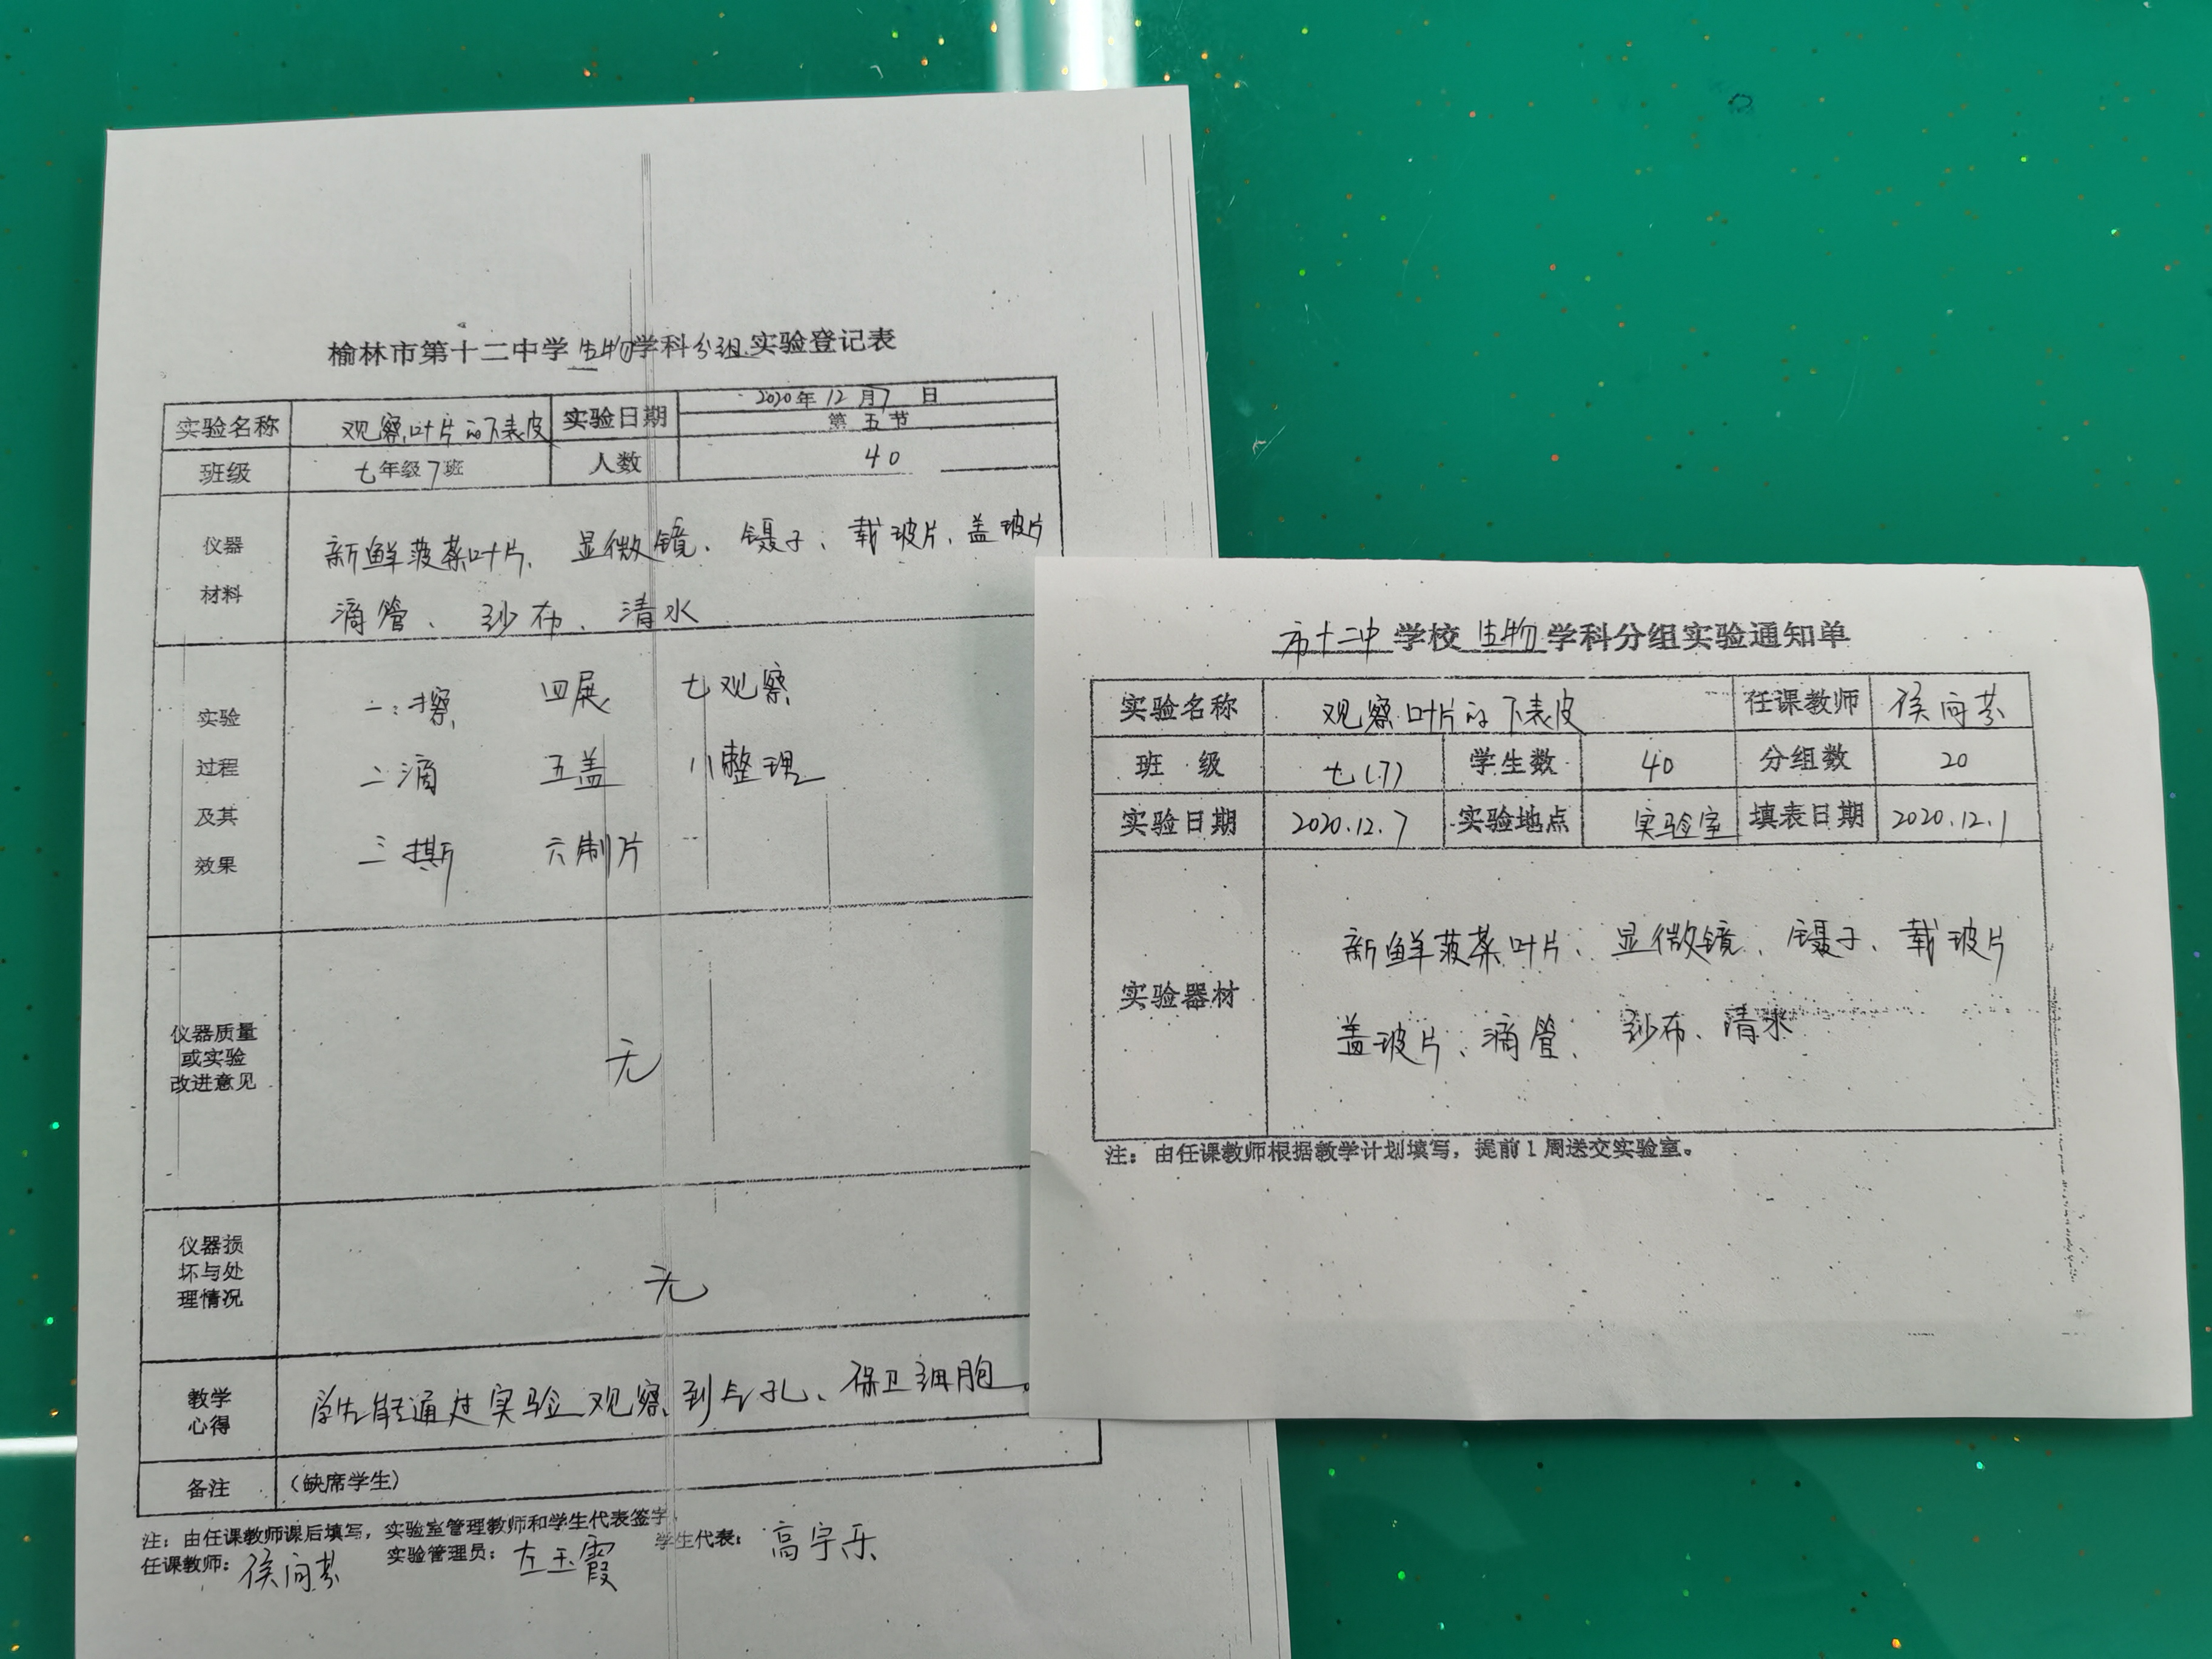 榆林市第十二中学生物学科分组实验登记表
实验名称 观察叶片的下表皮 实验日期 2020年12月7日
第五节
班级 七年级7班 人数 40
仪器
材料
新鲜菠菜叶片、显微镜、镊子、载玻片、盖玻片
滴管、纱布、清水
实验
过程
及其
效果
一:擦 四展 七观察
二滴 五盖 八整理
三撕 六制片
仪器质量
或实验
改进意见
无
仪器损
坏与处
理情况
无
教学
心得
学生能通过实验观察到气孔、保卫细胞。
备注 (缺席学生)
注:由任课教师课后填写,实验室管理教师和学生代表签字。
任课教师:侯向芬 实验管理员:左玉霞 学生代表:高宇乐
市十二中学校生物学科分组实验通知单
实验名称 观察叶片的下表皮 任课教师 侯向芬
班 级 七(7) 学生数 40 分组数 20
实验日期 2020.12.7 实验地点 实验室 填表日期 2020.12.1
实验器材
新鲜菠菜叶片、显微镜、镊子、载玻片
盖玻片、滴管、纱布、清水
注:由任课教师根据教学计划填写,提前1周送交实验室。